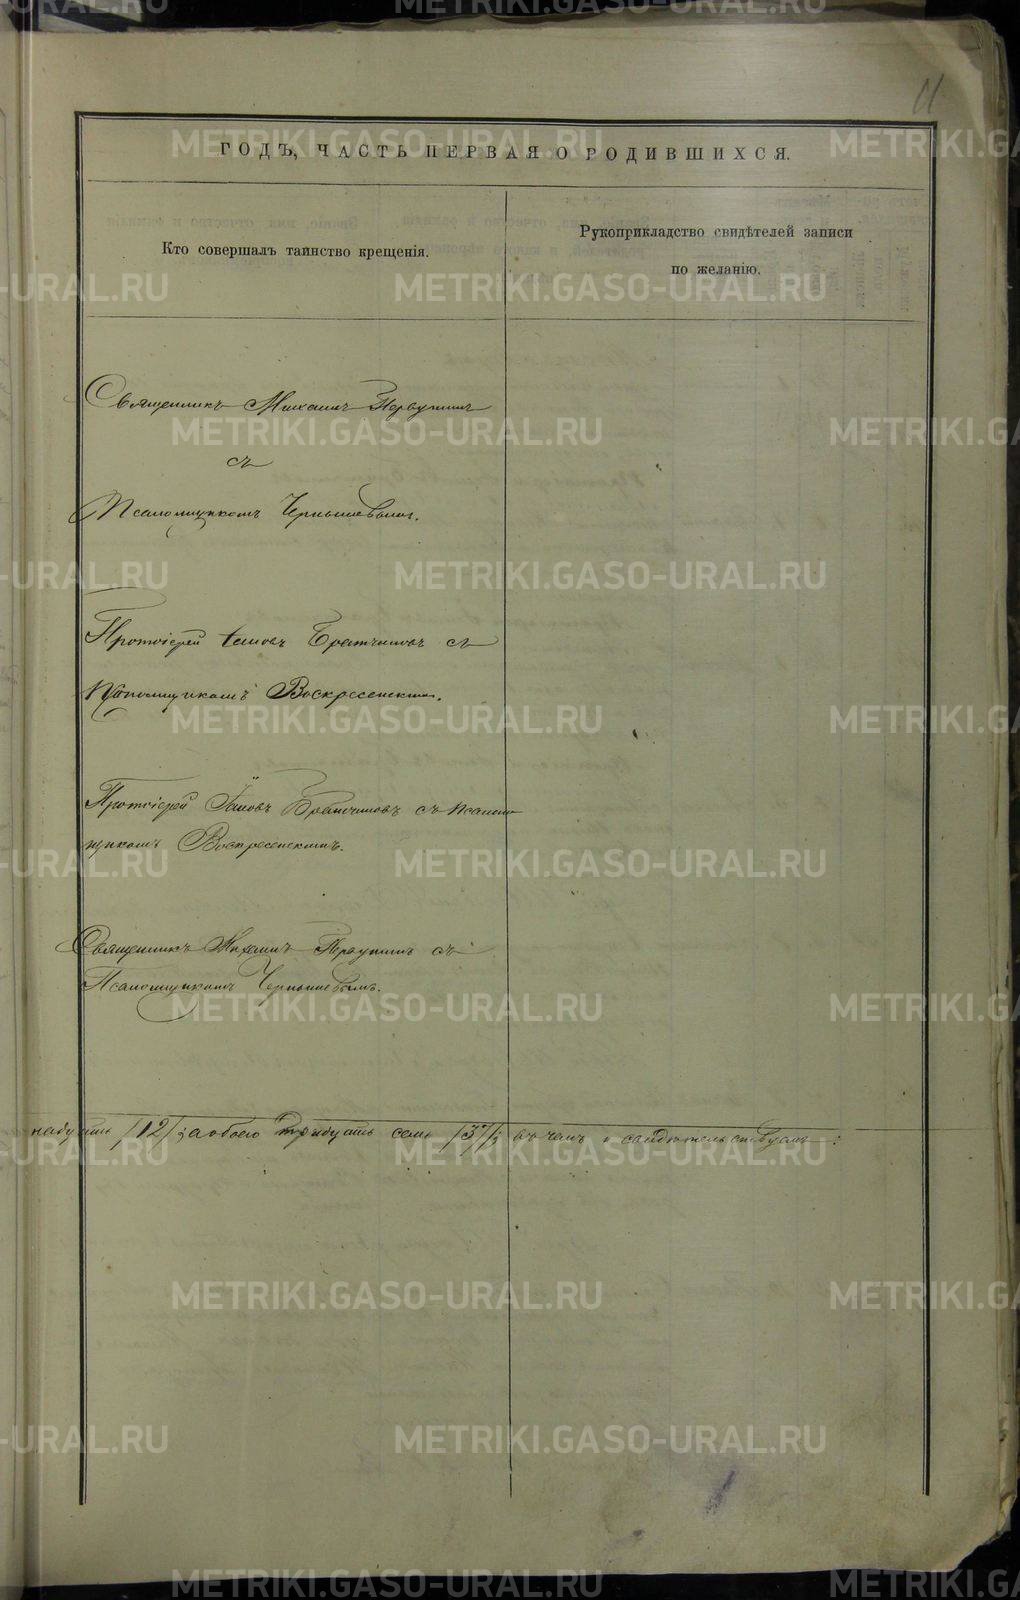 11
ГОДЪ, ЧАСТЬ ПЕРВАЯ О РОДИВШИХСЯ.
Кто совершалъ таинство крещенія.
Рукоприкладство свидѣтелей записи
по желанію.
Священникъ Михаилъ Первушинъ
съ
Псаломщикомъ Чернышевымъ.
Протоіерей Іаковъ Братчиковъ съ
Псаломщикомъ Воскресенскимъ.
Протоіерей Іаковъ Братчиковъ съ псалом
щикомъ Воскресенскимъ.
Священникъ Михаилъ Первушинъ съ
Псаломщикомъ Чернышевымъ.
надцать /12/, а обоего тридцать семь /37/, въ чемъ и свидѣтельствуемъ:
METRIKI.GASO-URAL.RU